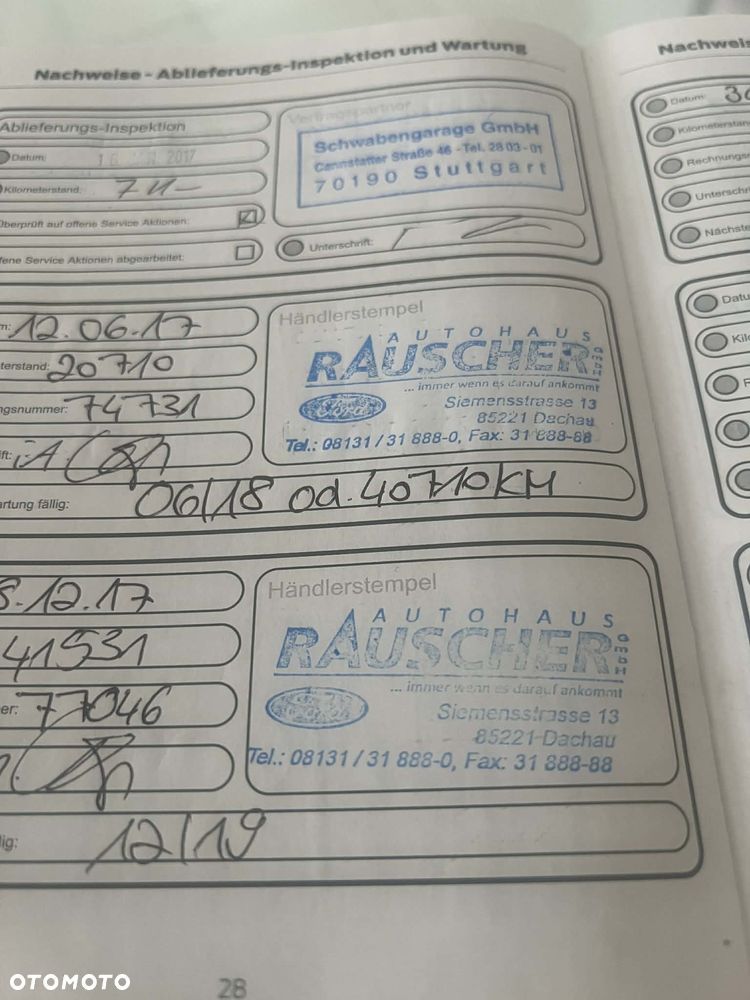 Nachweise - Ablieferungs-Inspektion und Wartung
Ablieferungs-Inspektion
Datum: 2017
Kilometerstand:
Überprüft auf offene Service Aktionen:
fene Service Aktionen abgearbeitet:
Vertragspartner
Schwabengarage GmbH
Cannstatter Straße 46 - Tel. 28 03 - 01
70190 Stuttgart
Unterschrift:
m: 12.06.17
terstand: 20710
ngsnummer: 74731
ift: iA
artung fällig: 06/18 od. 40710 KM
Händlerstempel
AUTOHAUS
RAUSCHER GmbH
... immer wenn es darauf ankommt
Ford
Siemensstrasse 13
85221 Dachau
Tel.: 08131 / 31 888-0, Fax: 31 888-88
8.12.17
41531
er: 77046
lig: 12/19
Händlerstempel
AUTOHAUS
RAUSCHER GmbH
... immer wenn es darauf ankommt
Siemensstrasse 13
85221 Dachau
Tel.: 08131 / 31 888-0, Fax: 31 888-88
28
Nachweis
Datum: 30
Kilometerstand
Rechnungs
Unterschri
Nächste
Datu
Kil
R
OTOMOTO